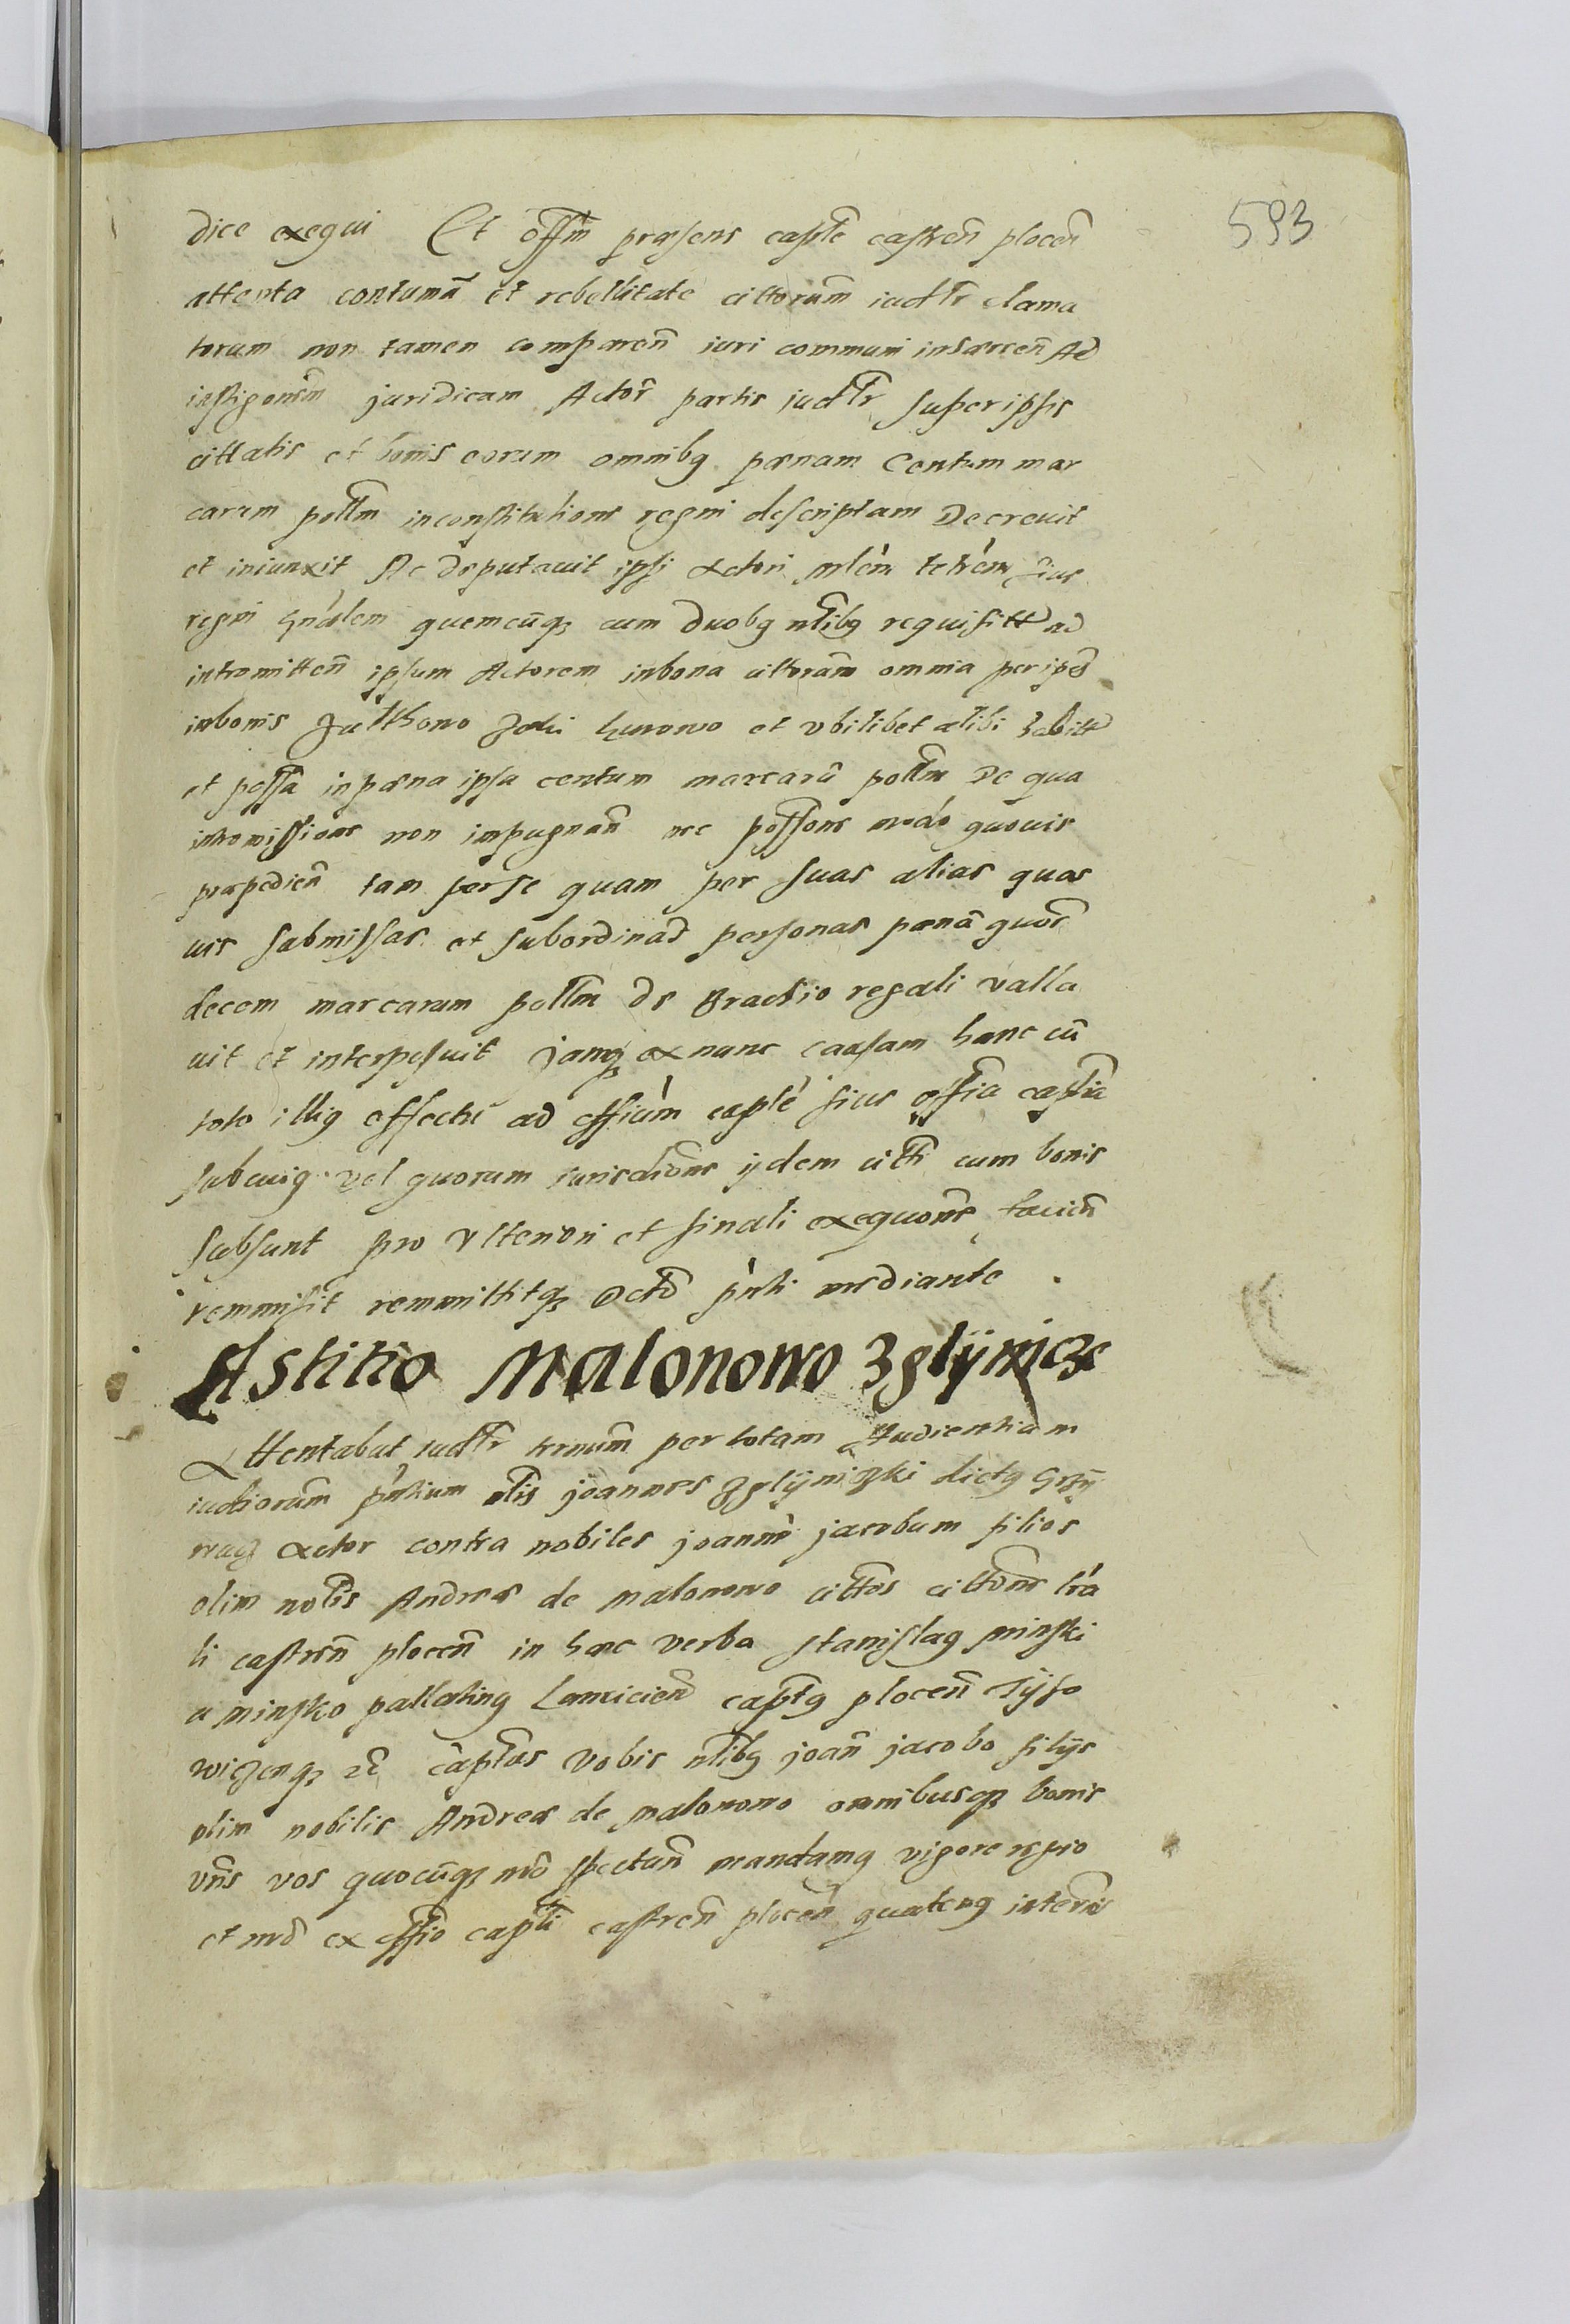 593
dice exequi Et offm præsens caplē castreñ ploceñ
attenta contumā et rebellitate cittorum iudtr clama
torum non tamen compareñ iuri communi
juridicam Actoř partis judtr super ipsis
cittatis et bonis eorum omnibq pænam Centum mar
carum pollm in constitutione regni descriptam Decrevit
et iniunxit Ac deputavit ipsi Actori
regni gnálem quemcūqz cum duobq nlibq requisitt ad
intromitteñ ipsum Actorem in bona cittorum omnia per ipōs
in bonis et ubilibet alibi habitt
et possā in pæna ipsa centum marcarū pollm De qua
intromissione non impugnañ nec possone modo quovis
præpedieñ tam per se quam per suas alias quas
vis submissas et subordinaď personas pænā quor̄
decem marcarum pollm de brachio regali valla
vit et interposuit janqz ex nunc causam hanc cū
toto illiq effectu ad offium caplé sive offia castria
sub cuiq vel quorum iurisdione ijdem citti cum bonis
subsunt pro ulteriori et finali exequone facieñ
remmisit remmittitqz Dcto pnti mediante
Astitio Malonowo Zglÿnicze
Attentabat iudtr trmum per totam Audientiam
iudiorum pntium nlis joannes Zglÿniczki dictq Grzÿ
wacz Actor contra nobiles joannē jacobum filios
olim nolis Andreæ de Malonowo cittos cittone lrā
li castreñ ploceñ in hæc verba stanislaq minski
a minsko pallatinq Lancicieñ captq ploceñ Lÿso
wiczenqz zc captus Vobis nlibq joañ jacobo filÿs
olim nobilis Andreæ de Malonowo omnibusqz bonis
vris vos quocūqz mō spectañ mandamq vigore regio
et meo ex offio capli castreñ ploceñ quatenq